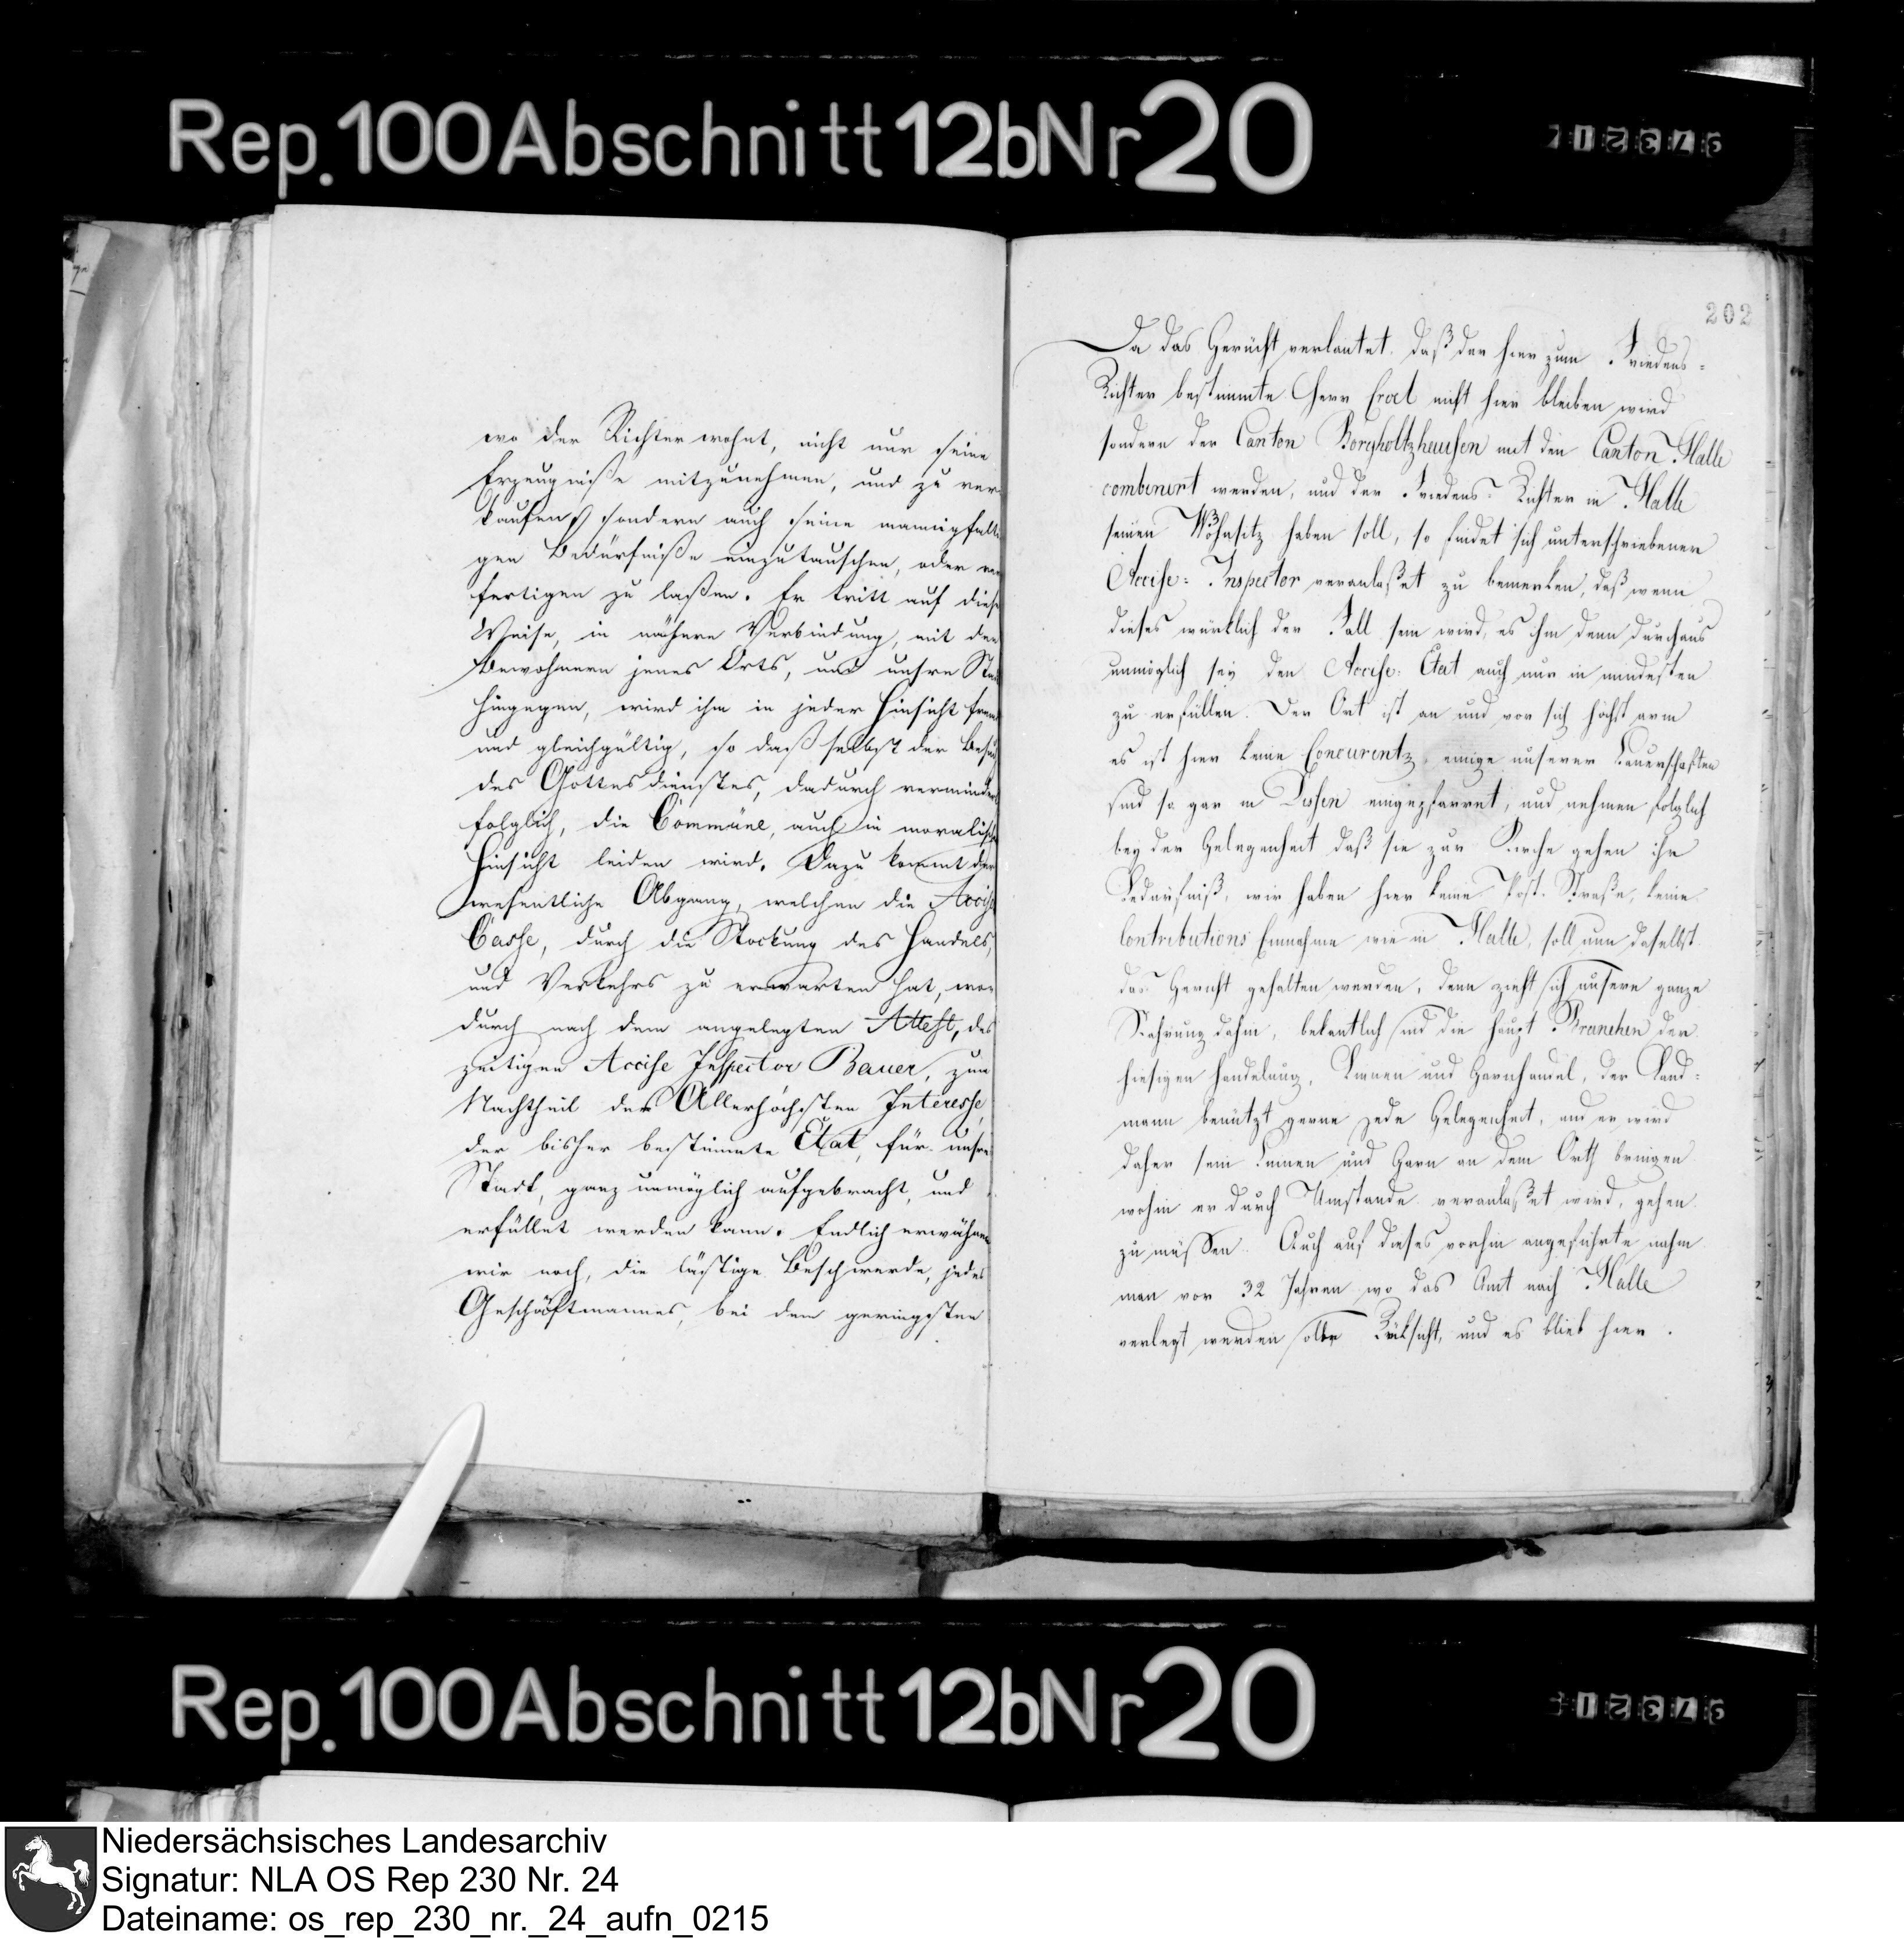 Rep. 100 Abschnitt 12b Nr 20
wo der Richter wohnt, nicht nur seine
Erzeugniße mitzunehmen, und zu ver¬
kaufen, sondern auch seine mannigfalti
gen Bedürfniße einzutauschen, oder ver
fertigen zu laßen. Er tritt auf diese
Weise, in nähere Verbindung, mit den
Bewohnern jenes Orts, und unsre Stadt
hingegen, wird ihm in jeder Hinsicht fremd
und gleichgültig, so daß selbst der Besuch
des Gottesdienstes, dadurch vermindert
folglich, die Commüne, auch in moralischer
Hinsicht leiden wird. Dazu kommt der
wesentliche Abgang, welchen die Accise
Casse, durch die Stockung des Handels,
und Verkehrs zu erwarten hat, wo¬
durch nach dem angelegten Attest, des
zeitigen Accise Inspector Bauer, zum
Nachtheil des Allerhöchsten Interesse,
der bisher bestimmte Etat, für unsre
Stadt, ganz unmöglich aufgebracht, und
erfüllet werden kann. Endlich erwähnen
wir noch, die lästige Beschwerde, jedes
Geschäftmannes, bei den geringsten
202
Da das Gerücht verlautet, daß der hier zum Friedens=
Richter bestimmte Herr nicht hier bleiben wird
sondern der Canton Borgholtzhausen mit den Canton Halle
combenirt werden, und der Friedens= Richter in Halle
seinen Wohnsitz haben soll, so findet sich unterschriebener
Accise= Inspector veranlaßet zu bemerken, daß wenn
dieses würklich der Fall sein wird, es ihm denn durchaus
unmöglich sey den Accise= Etat auch nur in mindesten
zu erfüllen. Der Ort ist an und vor sich höchst arm
es ist hier keine Concurentz, einige unserer Bauerschaften
sind so gar in Dissen eingepfarret, und nehmen folglich
bey der Gelegenheit daß sie zur Kirche gehen ihr
Bedürfniß, wir haben hier keine Post-Straße, keine
Contributions Einnahme wie in Halle, soll nun daselbst
das Gericht gehalten werden, denn zieht sich unsere ganze
Nahrung dahin, bekantlich sind die haupt Branchen der
hiesigen Handelung, Linnen und Garnhandel, der Land=
mann benützt gerne jede Gelegenheit, und er wird
daher sein Linnen und Garn an dem Orth bringen
wohin er durch Umstande veranlaßet wird, gehen
zu müssen. Auch auf dieses vorhin angeführte nahm
man vor 32 Jahren wo das Amt nach Halle
verlegt werden solte Rüksicht, und es blieb hier.
Rep. 100 Abschnitt 12b Nr 20
Niedersächsisches Landesarchiv
Signatur: NLA OS Rep 230 Nr. 24
Dateiname: os_rep_230_nr._24_aufn_0215